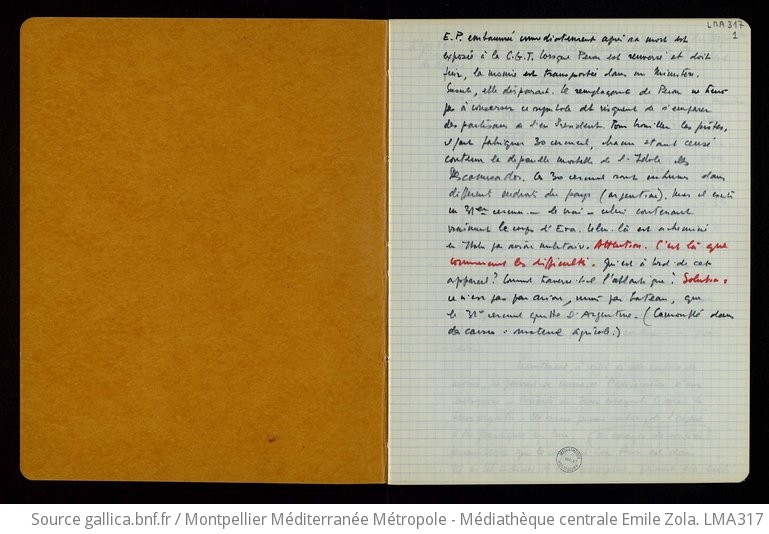 LMA 317
1
E.P. embaumée immédiatement après sa mort est
exposée à la C.G.T. Lorsque Peron est renversé et doit
fuir, la momie est transportée dans un Ministère.
Ensuite, elle disparaît. Le remplaçant de Peron ne tient
pas à conserver ce symbole et risquent de s'emparer
des partisans de l'ex Président. Pour brouiller les pistes,
il fait fabriquer 30 cercueils, chacun étant censé
contenir la dépouille mortelle de l'Idole des
Descamisados. Les 30 cercueils sont inhumés dans
différents endroits du pays (argentine). Mais il existe
un 31ème cercueil – le vrai – celui contenant
vraiment le corps d'Eva. Celui-là est acheminé
en Italie par avion militaire. Attention. C'est là que
commencent les difficultés. Qui est à bord de cet
appareil? Comment traverse-t-il l'atlantique? Solution :
ce n'est pas par avion, mais par bateau, que
le 31e cercueil quitte l'Argentine. (Camouflé dans
des caisses : matériel agricole.)
Source gallica.bnf.fr / Montpellier Méditerranée Métropole - Médiathèque centrale Emile Zola. LMA317